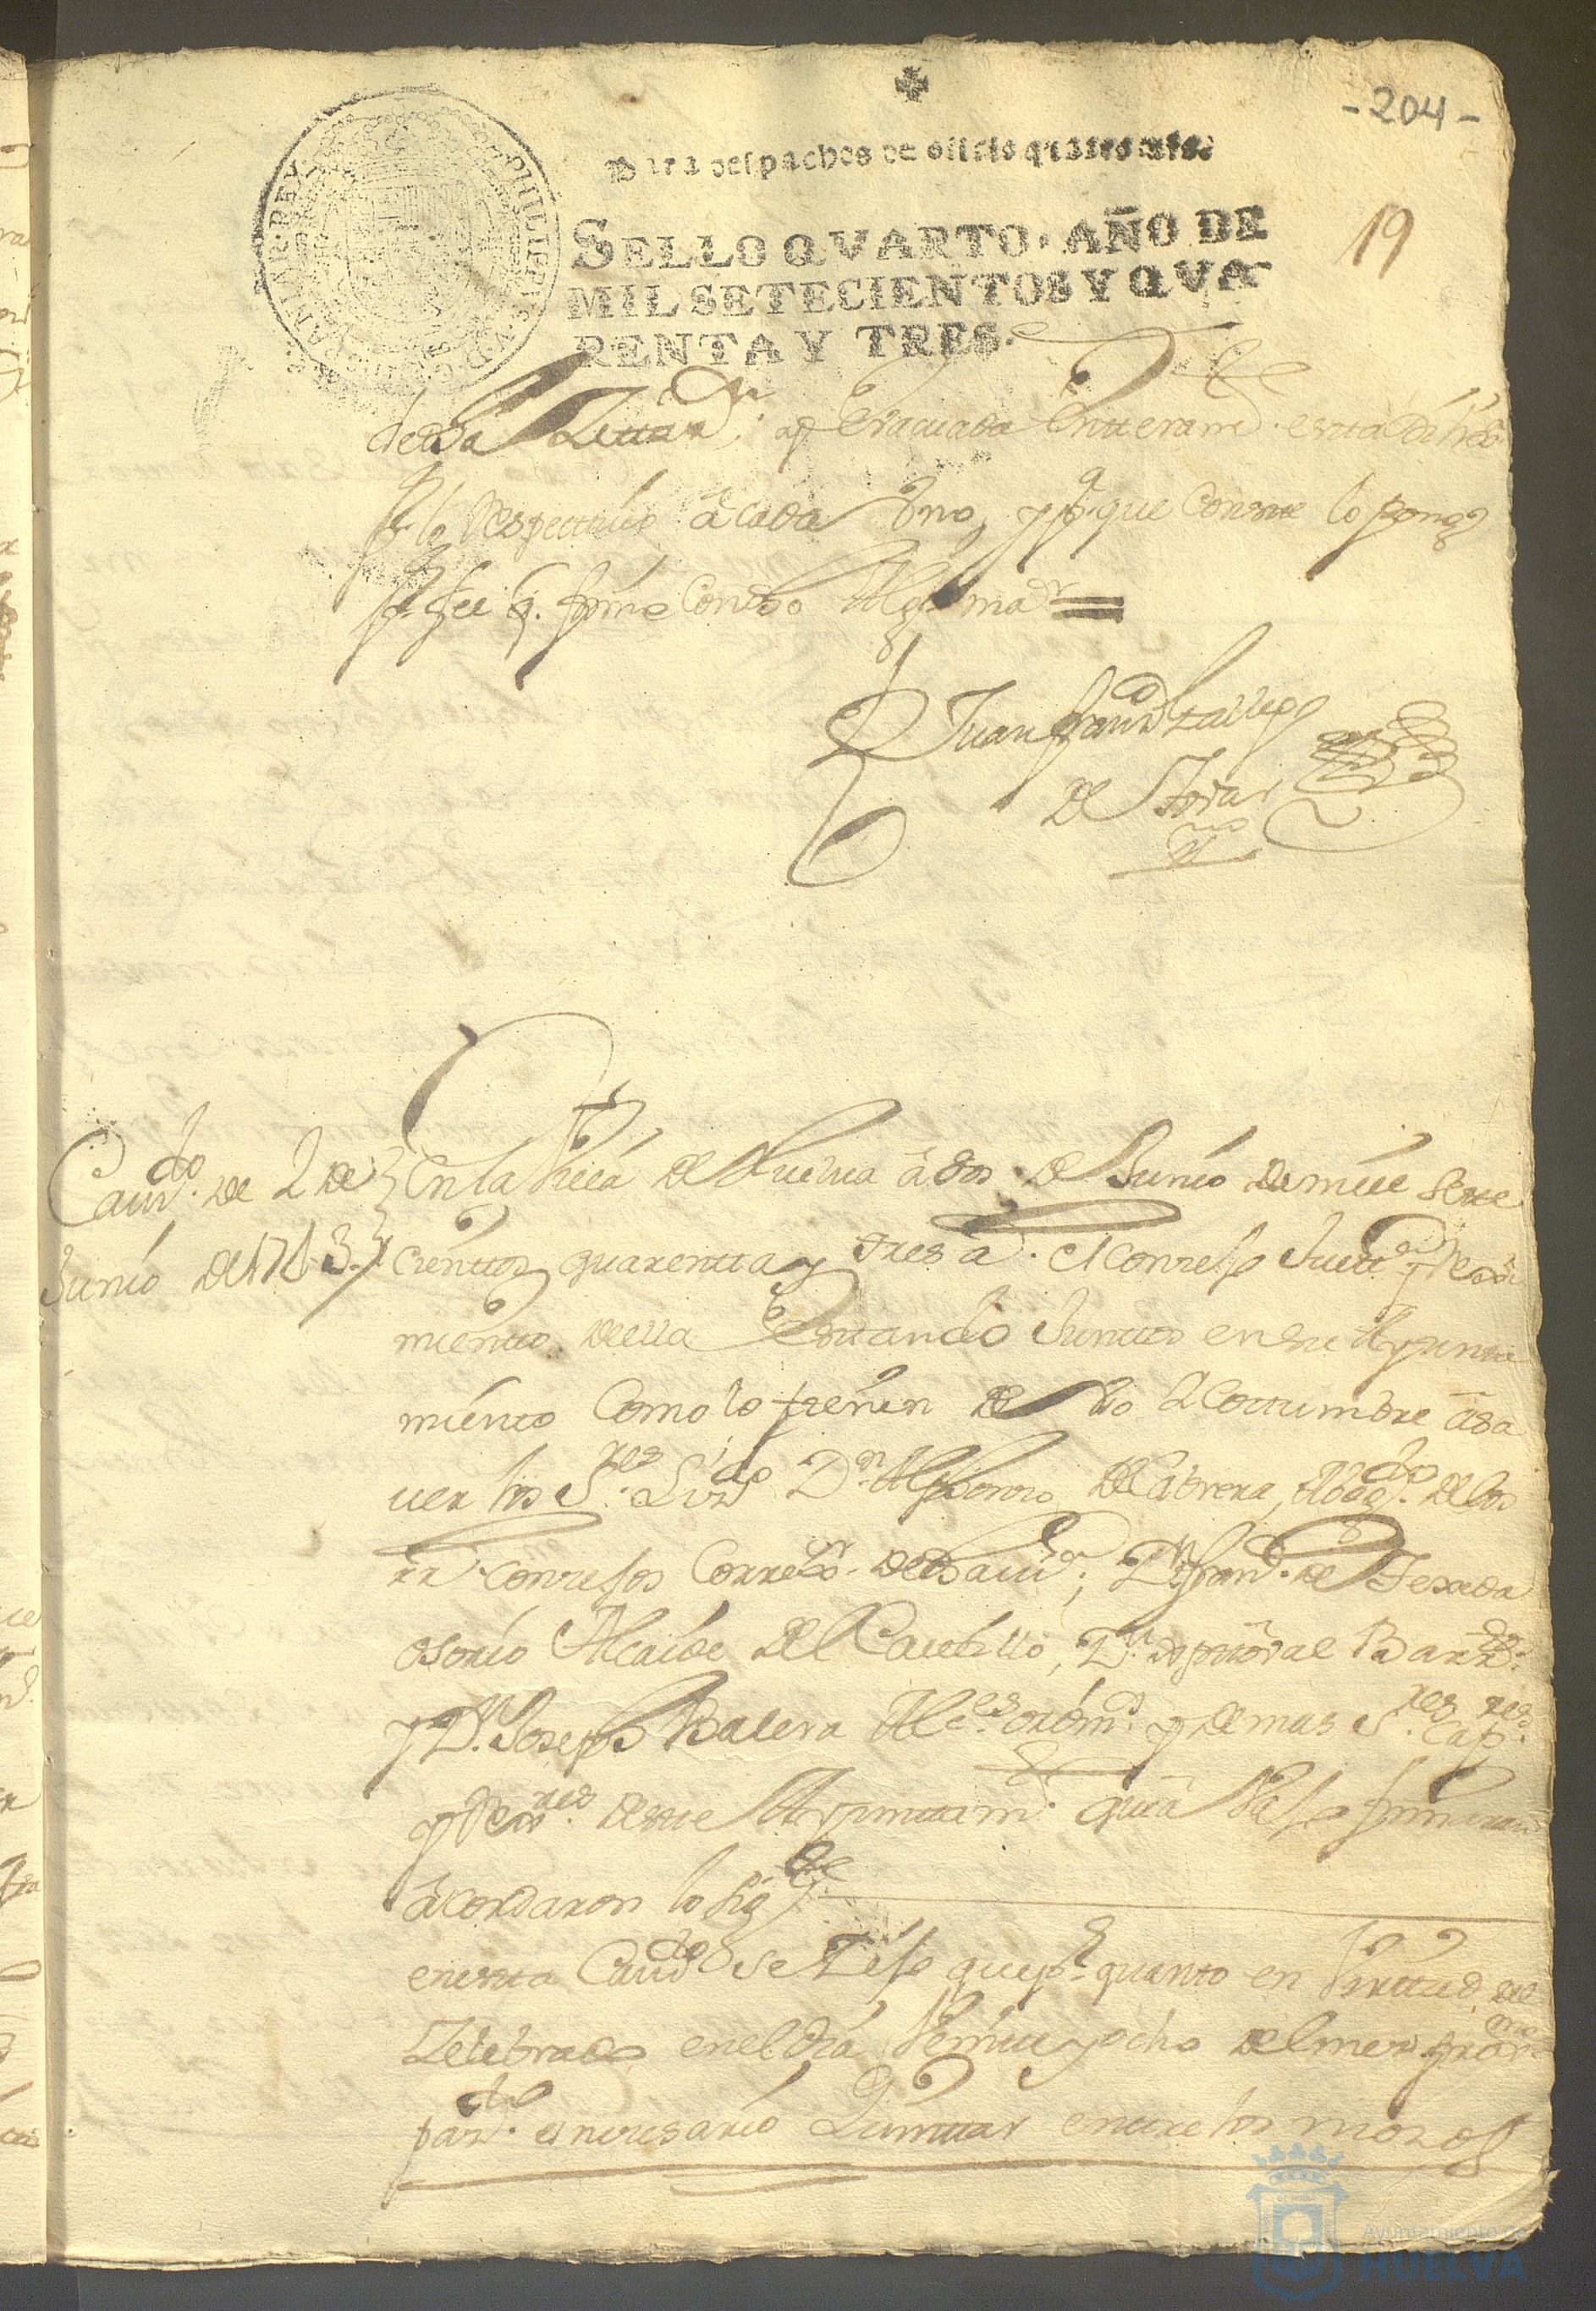 -204-
19
Para despachos de oficio quatro mrs.
SELLO QVARTO. AÑO DE
MIL SETECIENTOS Y QVA
RENTA Y TRES.
PHILIPPUS V D G HISPANIAR REX
enteramte. esta
respectivo á cada Uno, y pa. que Conste lo pongo
pr. fee q. firmé Con dho Algl. mar.
Juan Franco Gallego
de Tovar
Cavdo. de 2 de
Junio de 1743.
En la Villa de Huelva á dos de Junio de mill sete
cienttos quarentta y tres as. el Consejo Justta. y Reji
miento della Esttando Junttos en su Ayunta
miento Como lo tienen de Uso Y Costtumbre á sa
ver los Sres. Lizdo. Dn. Alphonso de Cabrera, Abogdo. de los
rrs. Consejos Correxor. de dha Villa, Dn. Franco. de Texada
osorio Alcaide del Casttillo, Dn. Barrda.
y Dn. Joseph Balera Alces. ordins. y demas Sres. Capres.
y Rexres. de este Ayunttamto. que aqui Vajo firmaran
acordaron lo sigte.
en estta Cavdo se Dijo que pr. quanto en Virttud del
Zelebrado en el dia Veintte y ocho del mes proxmo
pasdo. es nezesario Quinttar enttre los mozos
Ayuntamiento de
HUELVA